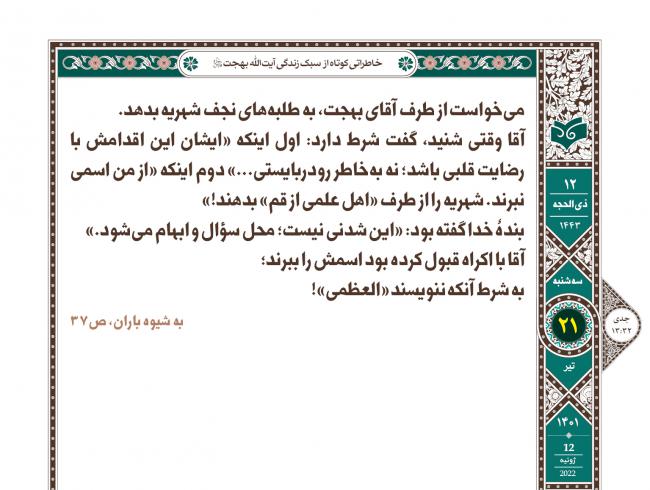 خاطراتی کوتاه از سبک زندگی آیت‌الله بهجت
می‌خواست از طرف آقای بهجت، به طلبه‌های نجف شهریه بدهد.
آقا وقتی شنید، گفت شرط دارد: اول اینکه «ایشان این اقدامش با
رضایت قلبی باشد؛ نه به‌خاطر رودربایستی...» دوم اینکه «از من اسمی
نبرند. شهریه را از طرف «اهل علمی از قم» بدهند!»
بندهٔ خدا گفته بود: «این شدنی نیست؛ محل سؤال و ابهام می‌شود.»
آقا با اکراه قبول کرده بود اسمش را ببرند؛
به شرط آنکه ننویسند «العظمی»!
به شیوه باران، ص۳۷
۱۲
ذی‌الحجه
۱۴۴۳
سه‌شنبه
۲۱
تیر
۱۴۰۱
12
ژوئیه
2022
جدی
۱۳:۳۲